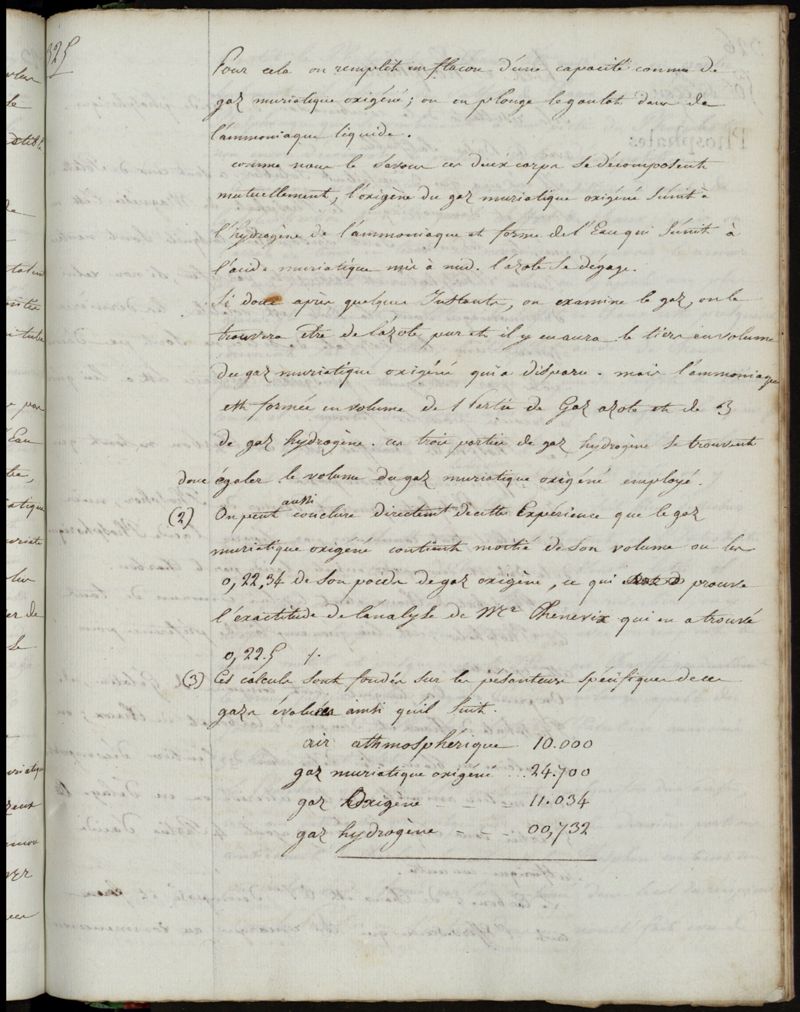 325
Pour cela on remplit un flacon d'une capacité connue de
gaz muriatique oxigéné; on en plonge le goulot dans de
l'ammoniaque liquide.
comme nous le savons ces deux corps se décomposent
mutuellement, l'oxigène du gaz muriatique oxigéné s'unit à
l'hydrogène de l'ammoniaque et forme de l'Eau qui s'unit à
l'acide muriatique mis à nud. l'azote se dégage.
Si donc après quelques Instants, on examine le gaz, on le
trouvera être de l'azote pur et il y en aura le tiers en volume
du gaz muriatique oxigéné qui a disparu. mais l'ammoniaque
est formée en volume de 1 Partie de Gaz azote et de 3
de gaz hydrogène. ces trois parties de gaz hydrogène se trouvent
donc égaler le volume du gaz muriatique oxigéné employé.
(2) On peut aussi conclure directem.t de cette Expérience que le gaz
muriatique oxigéné contient moitié de son volume ou les
0,22,34 de son poids de gaz oxigène, ce qui prouve
l'exactitude de l'analyse de Mr. Chenevix qui en a trouvé
0,225 /.
(3) Ces calculs sont fondés sur les pésanteurs spécifiques de ces
gazs évalués ainsi qu'il suit.
air athmosphérique 10.000
gaz muriatique oxigéné ... 24.700
gaz Oxigène - - 11.034
gaz hydrogène 00,732
Phosphates